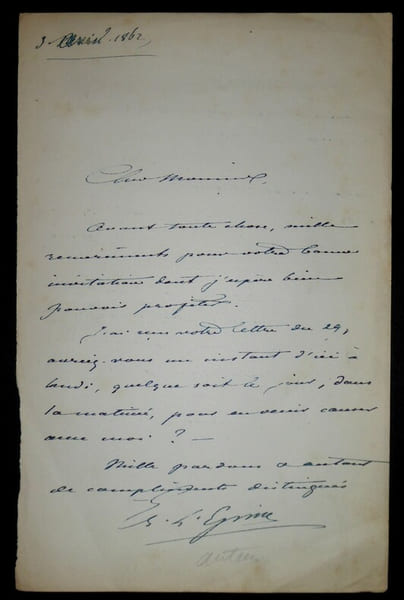 3 Avril 1862,
Cher Monsieur,
Avant toute chose, mille
remerciments pour votre bonne
invitation dont j'espère bien
pouvoir profiter.
J'ai reçu votre lettre du 29,
auriez-vous un instant d'ici à
lundi, quelque soit le jour, dans
la matinée, pour en venir causer
avec moi ? —
Mille pardons & autant
de compliments distingués
E. L'Epine
auteur